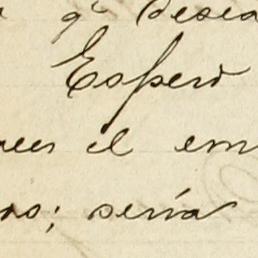 qe desea
Espero
el em
os; sería